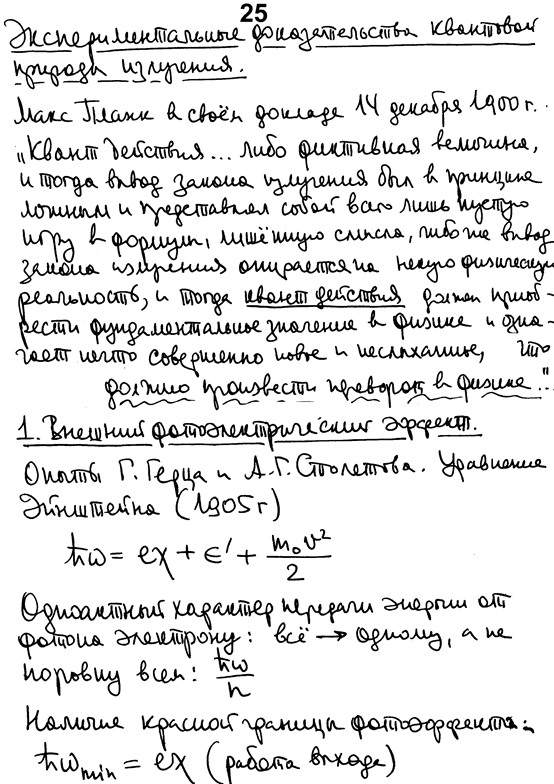 25
Экспериментальные доказательства квантовой
природы излучения.
Макс Планк в своём докладе 14 декабря 1900 г.:
"Квант действия... либо фиктивная величина,
и тогда вывод закона излучения был в принципе
ложным и представлял собой всего лишь пустую
игру в формулы, лишённую смысла, либо же вывод
закона излучения опирается на некую физическую
реальность, и тогда квант действия должен приоб-
рести фундаментальное значение в физике и озна-
чает нечто совершенно новое и неслыханное, что
должно произвести переворот в физике".
1. Внешний фотоэлектрический эффект.
Опыты Г. Герца и А.Г. Столетова. Уравнение
Эйнштейна (1905 г)
ħω = eχ + ε' + m₀v²/2
Одноактный характер передачи энергии от
фотона электрону: всё → одному, а не
поровну всем: ħω/n
Наличие красной границы фотоэффекта:
ħω_min = eχ (работа выхода)